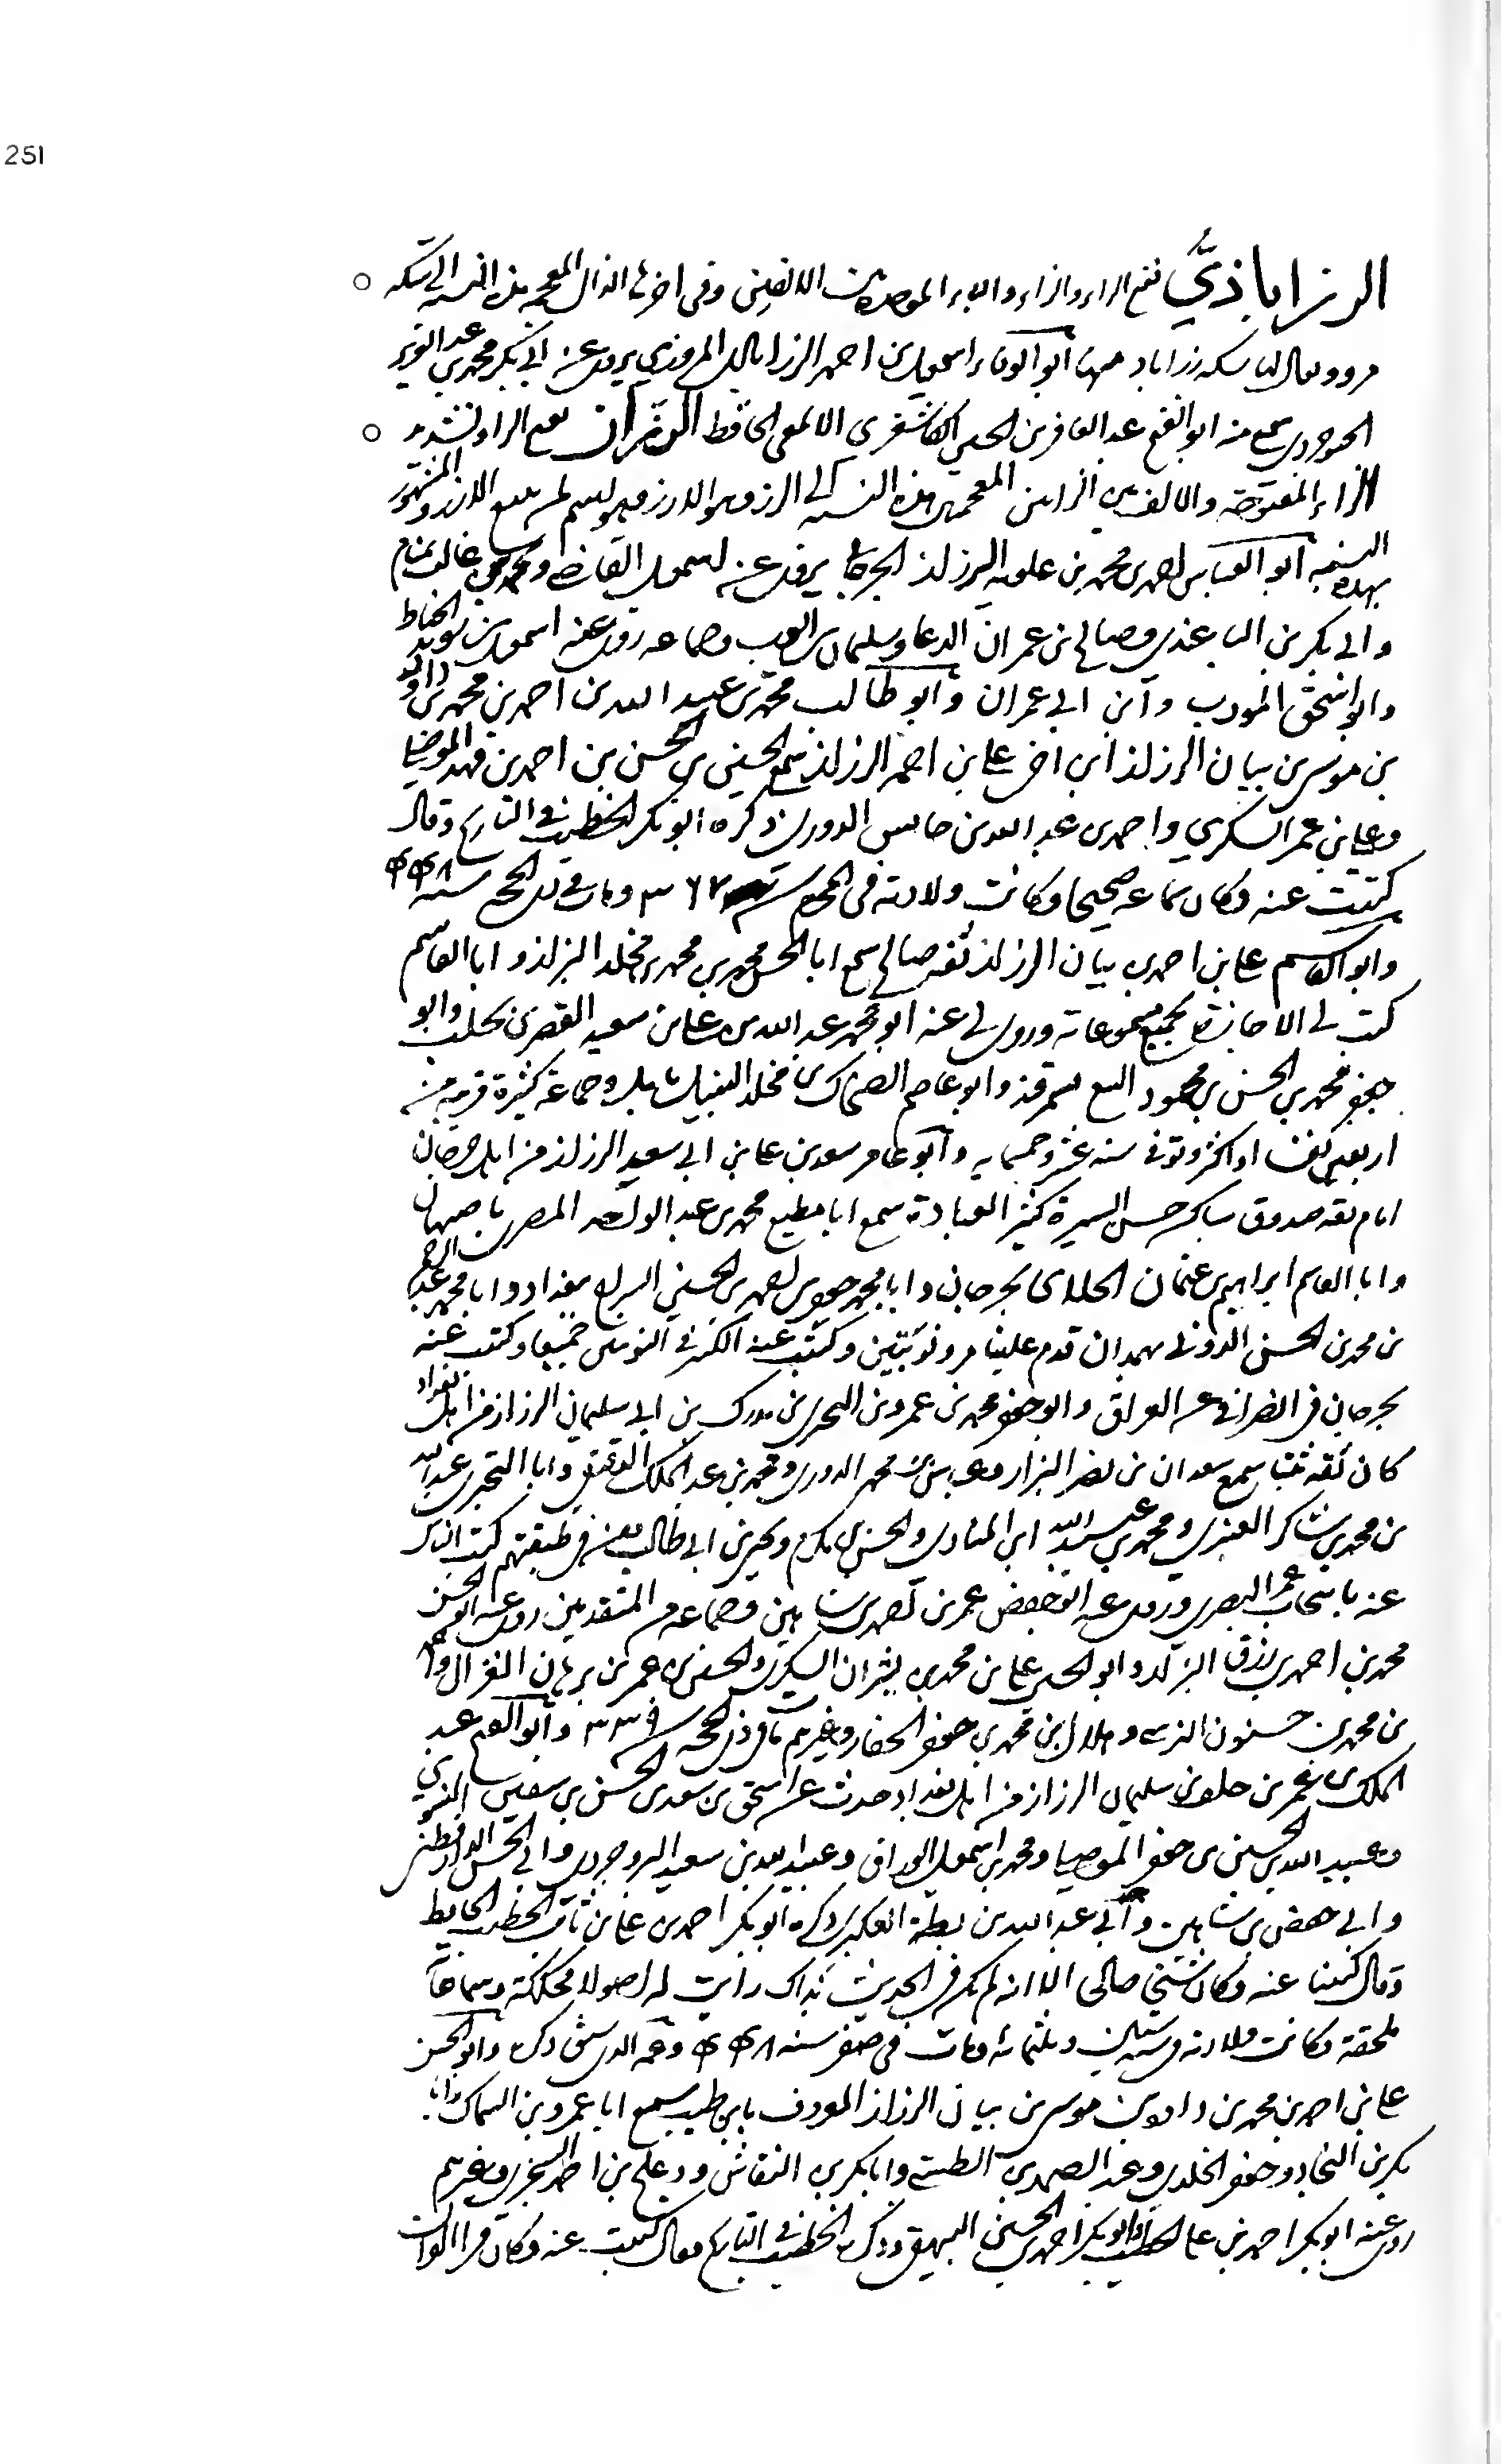 251
الرزاباذيّ بفتح الراء والزاء والباء الموحدة بين الالفين وفى اخرها الذال المعجمة هذه النسبة الى سكة
مرو ويقال لها سكه رزاباد منها ابو الوفاء اسمعيل بن احمد الرزاباذى المروزي يروى عن ابي بكر محمد بن عبد العزيز
الجنوجردى سمع منه ابو الفتح عبد الغافر بن الحسين الكاشغري الالمعى الحافظ الرزّاز بفتح الراء وتشديد
الزاء المفتوحة والالف بين الزاين المعجمتين هذه النسبه الى الرز وهو الارز وهو اسم لمن يبيع الارز والمشهور
بهذه النسبة ابو العباس احمد بن محمد بن علويه الرزاز الجرجاني يروى عن اسمعيل القاضى ومحمد بن غالب تمتام
وابي بكر بن الباغندى وصالح بن عمران الدعا وسليمان بن ايوب وجماعه روى عنه اسمعيل بن سويد الخياط
وابو اسحق المودب وابن ابي عمران وابو طالب محمد بن عبيد الله بن احمد بن محمد بن داود
بن موسى بن بيان الرزاز ابن اخى علي بن احمد الرزاز سمع الحسين بن الحسن بن احمد بن فهد الموصلي
وعلي بن عمر السكري واحمد بن عبد الله بن جلين الدورى ذكره ابو بكر الخطيب في التاريخ وقال
كتبت عنه وكان سماعه صحيحا وكانت ولادته فى المحرم سنة ٣٦٢ ومات في ذى الحجه سنة ٤٤٨
وابو القاسم علي بن احمد بن بيان الرزاز ثقه صالح سمع ابا الحسن محمد بن محمد بن مخلد البزاز وابا القاسم
كتب لي الاجازة بجميع مسموعاته وروى لي عنه ابو محمد عبد الله بن علي بن سعيد القصرى بحلب وابو
جعفر محمد بن الحسن بن محمود بسمرقند وابو عاصم الضحاك بن مخلد ببلد وجماعة كثيرة قريبه من
اربعين نفسا او اكثر وتوفى سنه عشر وخمسمايه وابو عامر سعد بن علي بن ابي سعيد الرزاز من اهل جرجان
امام ثقه صدوق حسن السيرة كثير العبادة سمع ابا مطيع محمد بن عبد الواحد المصرى باصبهان
وابا القاسم ابراهيم بن عثمان الخلالى بجرجان وابا محمد جعفر بن احمد بن الحسين السراج ببغداد وابا محمد عبد الرحمن
بن محمد بن الحسن الدونى بهمدان قدم علينا مرو نوبتين وكتبت عنه الكثير في النوبتين جميعا وكتبت عنه
بجرجان فى انصرافى عن العراق وابو جعفر محمد بن عمرو بن البخترى بن مدرك بن ابي سليمان الرزاز من اهل بغداد
كان ثقه ثبتا سمع سعدان بن نصر البزاز وعباس بن محمد الدورى ومحمد بن عبد الملك الدقيقى وابا البخترى عبد الله
بن محمد بن شاكر العنبرى ومحمد بن عبيد الله ابن المنادى والحسن بن مكرم ويحيى بن ابي طالب ومن فى طبقتهم كتب الناس
عنه بانتخاب عمر البصرى وروى عنه ابو حفص عمر بن احمد بن شاهين وجماعه من المتقدمين روى عنه ابو الحسن
محمد بن احمد بن رزق البزاز وابو الحسين علي بن محمد بن بشران السكرى والحسين بن عمر بن برهان الغزال واحمد
بن محمد بن حسنون النرسى وهلال بن محمد بن جعفر الحفار وغيرهم مات فى ذى الحجة سنة ٣٣٩ وابو القسم عبد
الملك بن عمر بن خلف بن سليمان الرزاز من اهل بغداد حدث عن اسحق بن سعد بن الحسن بن سفين النسوي
وعبيد الله بن الحسين بن جعفر الموصلي ومحمد بن اسمعيل الوراق وعبيد الله بن سعيد البروجردى وابي الحسن الدارقطني
وابي حفص بن شاهين وابي عبد الله بن بطة العكبرى ذكره ابو بكر احمد بن علي بن ثابت الخطيب الحافظ
وقال كتبنا عنه وكان شيخا صالحا الا انه لم يكن فى الحديث بذاك رايت له اصولا محككة وسماعاته
ملحقة وكانت ولادته فى ستين وثلثمائه ومات فى صفر سنه ٤٤٨ وابو الحسن
علي بن احمد بن محمد بن داود بن موسى بن بيان الرزاز المعروف بابن طيب سمع ابا عمرو بن السماك وابا
بكر بن النجاد وجعفر الخلدى وعبد الصمد بن الطستى وابا بكر بن النقاش ودعلج بن احمد السجزى وغيرهم
روى عنه ابو بكر احمد بن علي الخطيب وابو بكر احمد بن الحسين البيهقى وذكره الخطيب في التاريخ وقال كتبت عنه وكان